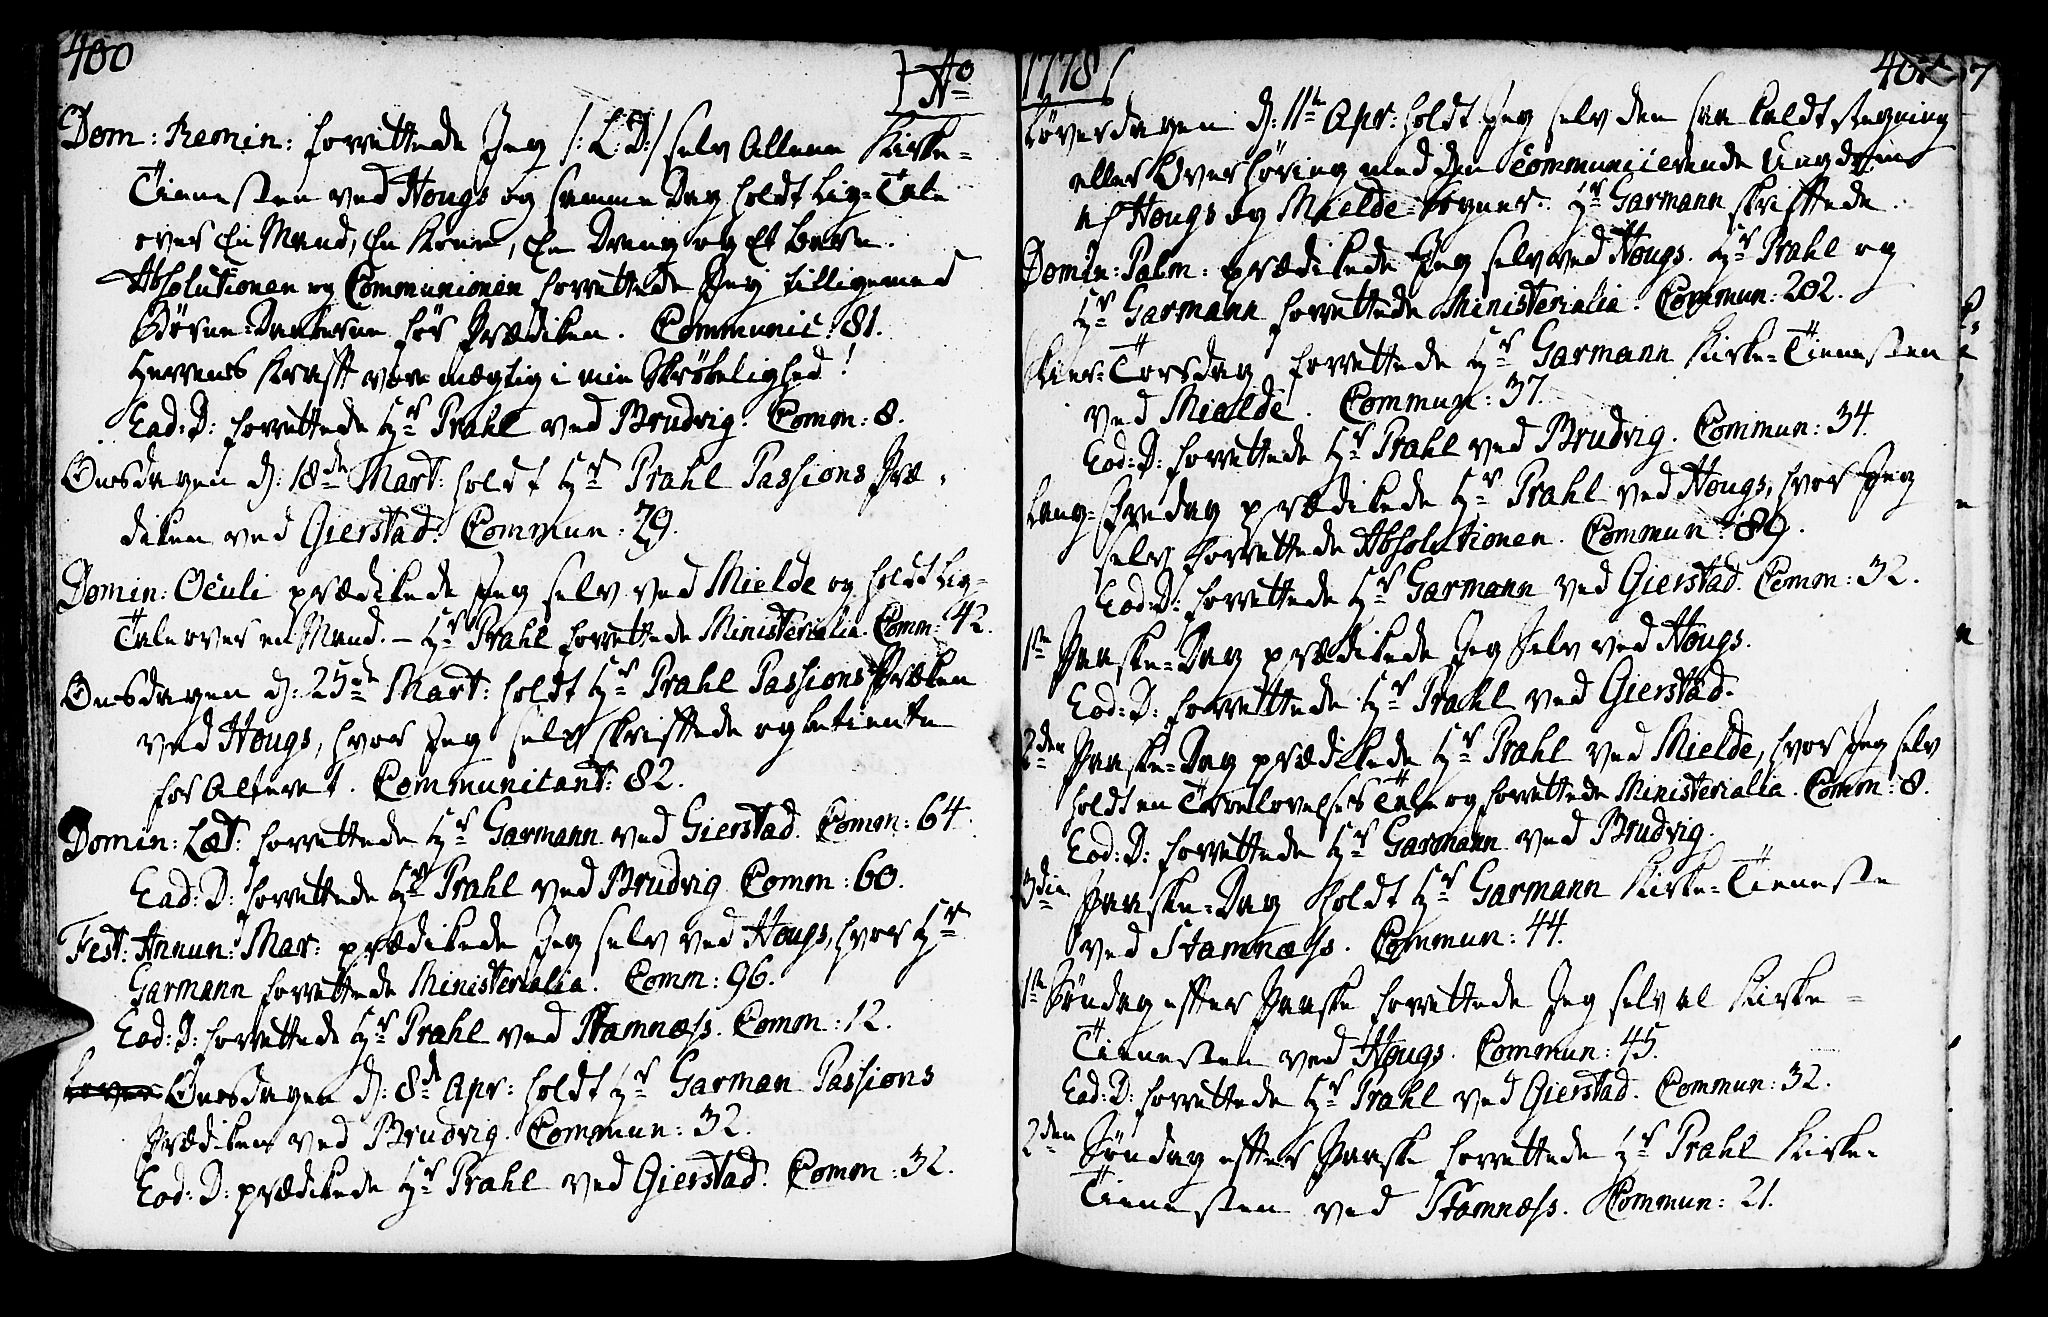 400
Ao
Dom: Remin: forrettede Jeg /: L: D:/ selv Allene Kirke-
Tienesten ved Hougs og samme Dag holdt Lig-Tale
over En Mand, En Kone, En Dreng og Et Barn.
Absolutionen og Communionen forrettede Jeg tilligemed
Børne-Daaberne før Prædiken. Communic: 81.
Herrens Krafft være mægtig i min Skrøbelighed!
Ead: D: forrettede Hr Prahl ved Brudvig. Comm: 8.
Onsdagen d: 18de Mart: holdt Hr Prahl Passions Præ-
diken ved Gierstad. Commun: 29.
Domin: Oculi prædikede Jeg selv ved Mielde og holdt Lig-
Tale over en Mand. – Hr Prahl forrettede Ministerialia. Comm: 42.
Onsdagen d: 25de Mart: holdt Hr Prahl Passions Præken
ved Hougs, hvor Jeg selv skriftede og betiente
for Alteret. Communicant: 82.
Domin: Læt: forrettede Hr Garmann ved Gierstad. Comm: 64.
Ead: D: forrettede Hr Prahl ved Brudvig. Comm: 60.
Fest: Annun: Mar: prædikede Jeg selv ved Hougs, hvor Hr
Garmann forrettede Ministerialia. Comm: 96.
Eod: D: forrettede Hr Prahl ved Stamness. Comm: 12.
Onsdagen d: 8de Apr: holdt Hr Garman Passions
Prædiken ved Brudvig. Commun: 32.
Eod: D: prædikede Hr Prahl ved Gierstad. Comm: 32.
1778
401
Løverdagen d: 11te Apr: holdt Jeg selv den saa kaldt Degning
eller Overhøring med den communicerende Ungdom
af Hougs og Mielde-Sogner. Hr Garmann skriftede.
Domin: Palm: prædikede Jeg selv ved Hougs. Hr Prahl og
Hr Garmann forrettede Ministerialia. Commun: 202.
Skier-Torsdag forrettede Hr Garmann Kirke-Tienesten
ved Mielde. Commun: 37.
Eod: D: forrettede Hr Prahl ved Brudvig. Commun: 34.
Lang-Fredag prædikede Hr Prahl ved Hougs, hvor Jeg
selv forrettede Absolutionen. Commun: 89.
Eod: D: forrettede Hr Garmann ved Gierstad. Comm: 32.
1te Paaske-Dag prædikede Jeg Selv ved Hougs.
Eod: D: forrettede Hr Prahl ved Gierstad.
2den Paaske-Dag prædikede Hr Prahl ved Mielde, hvor Jeg selv
holdt en Troelovelses Tale og forrettede Ministerialia. Comm: 8.
Eod: D: forrettede Hr Garmann ved Brudvig.
3die Paaske-Dag holdt Hr Garmann Kirke-Tieneste
ved Stamness. Commun: 44.
1te Søndag efter Paaske forrettede Jeg selv al Kirke-
Tienesten ved Hougs. Commun: 45.
Ead: D: forrettede Hr Prahl ved Gierstad. Commun: 32.
2den Søndag efter Paaske forrettede Hr Prahl Kirke-
Tienesten ved Stamness. Commun: 21.